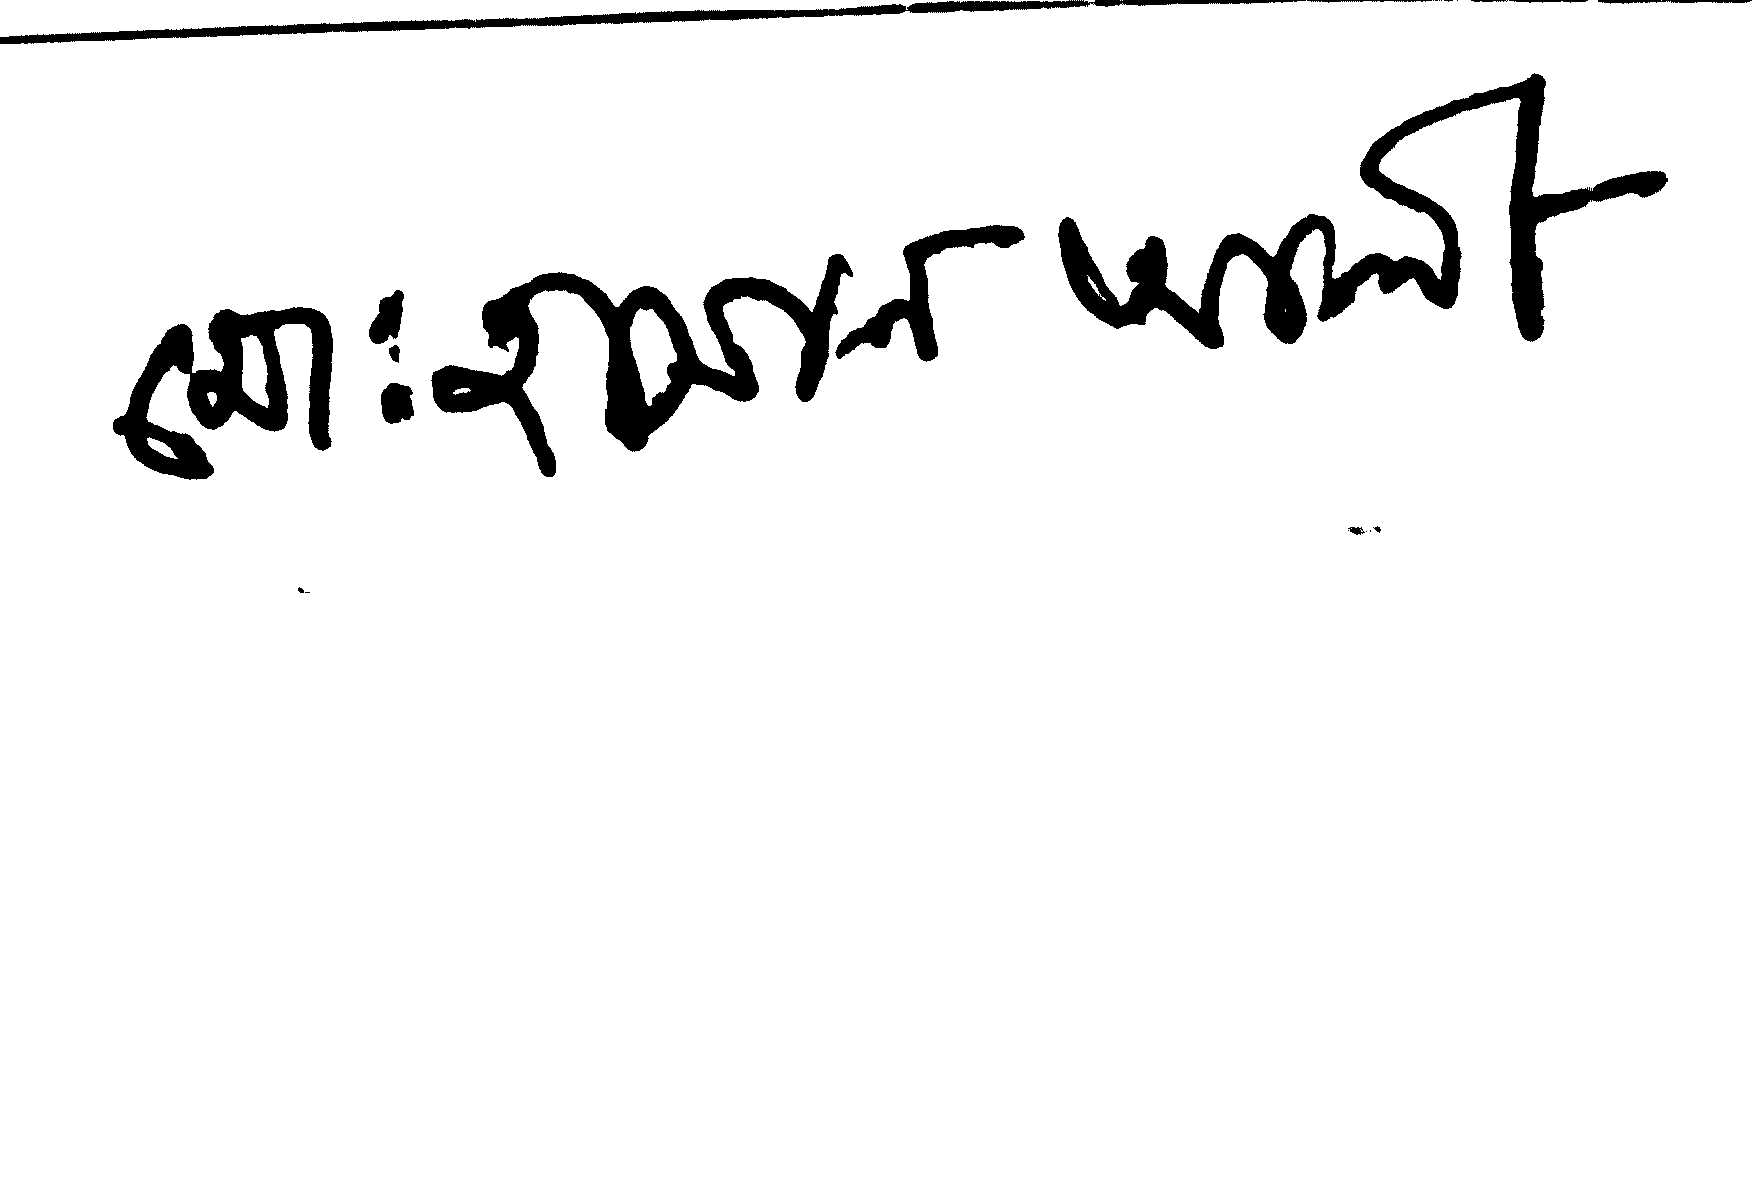 মোঃ হাসান আলী